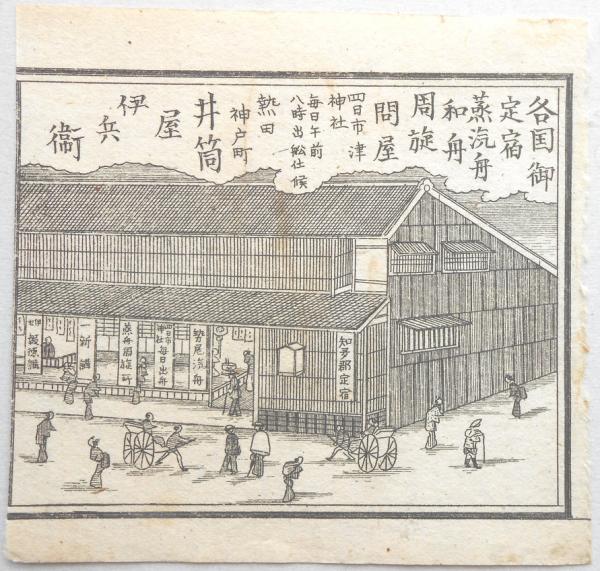 各国御
定宿
蒸汽舟
和舟
周旋
問屋
四日市 津
神社
毎日午前
八時出舩仕候
熱田
神戸町
井筒
屋
伊
兵
衞
知多郡定宿
勢尾汽舟
四日市
神社
毎日出舟
蒸舟周旋所
一新講